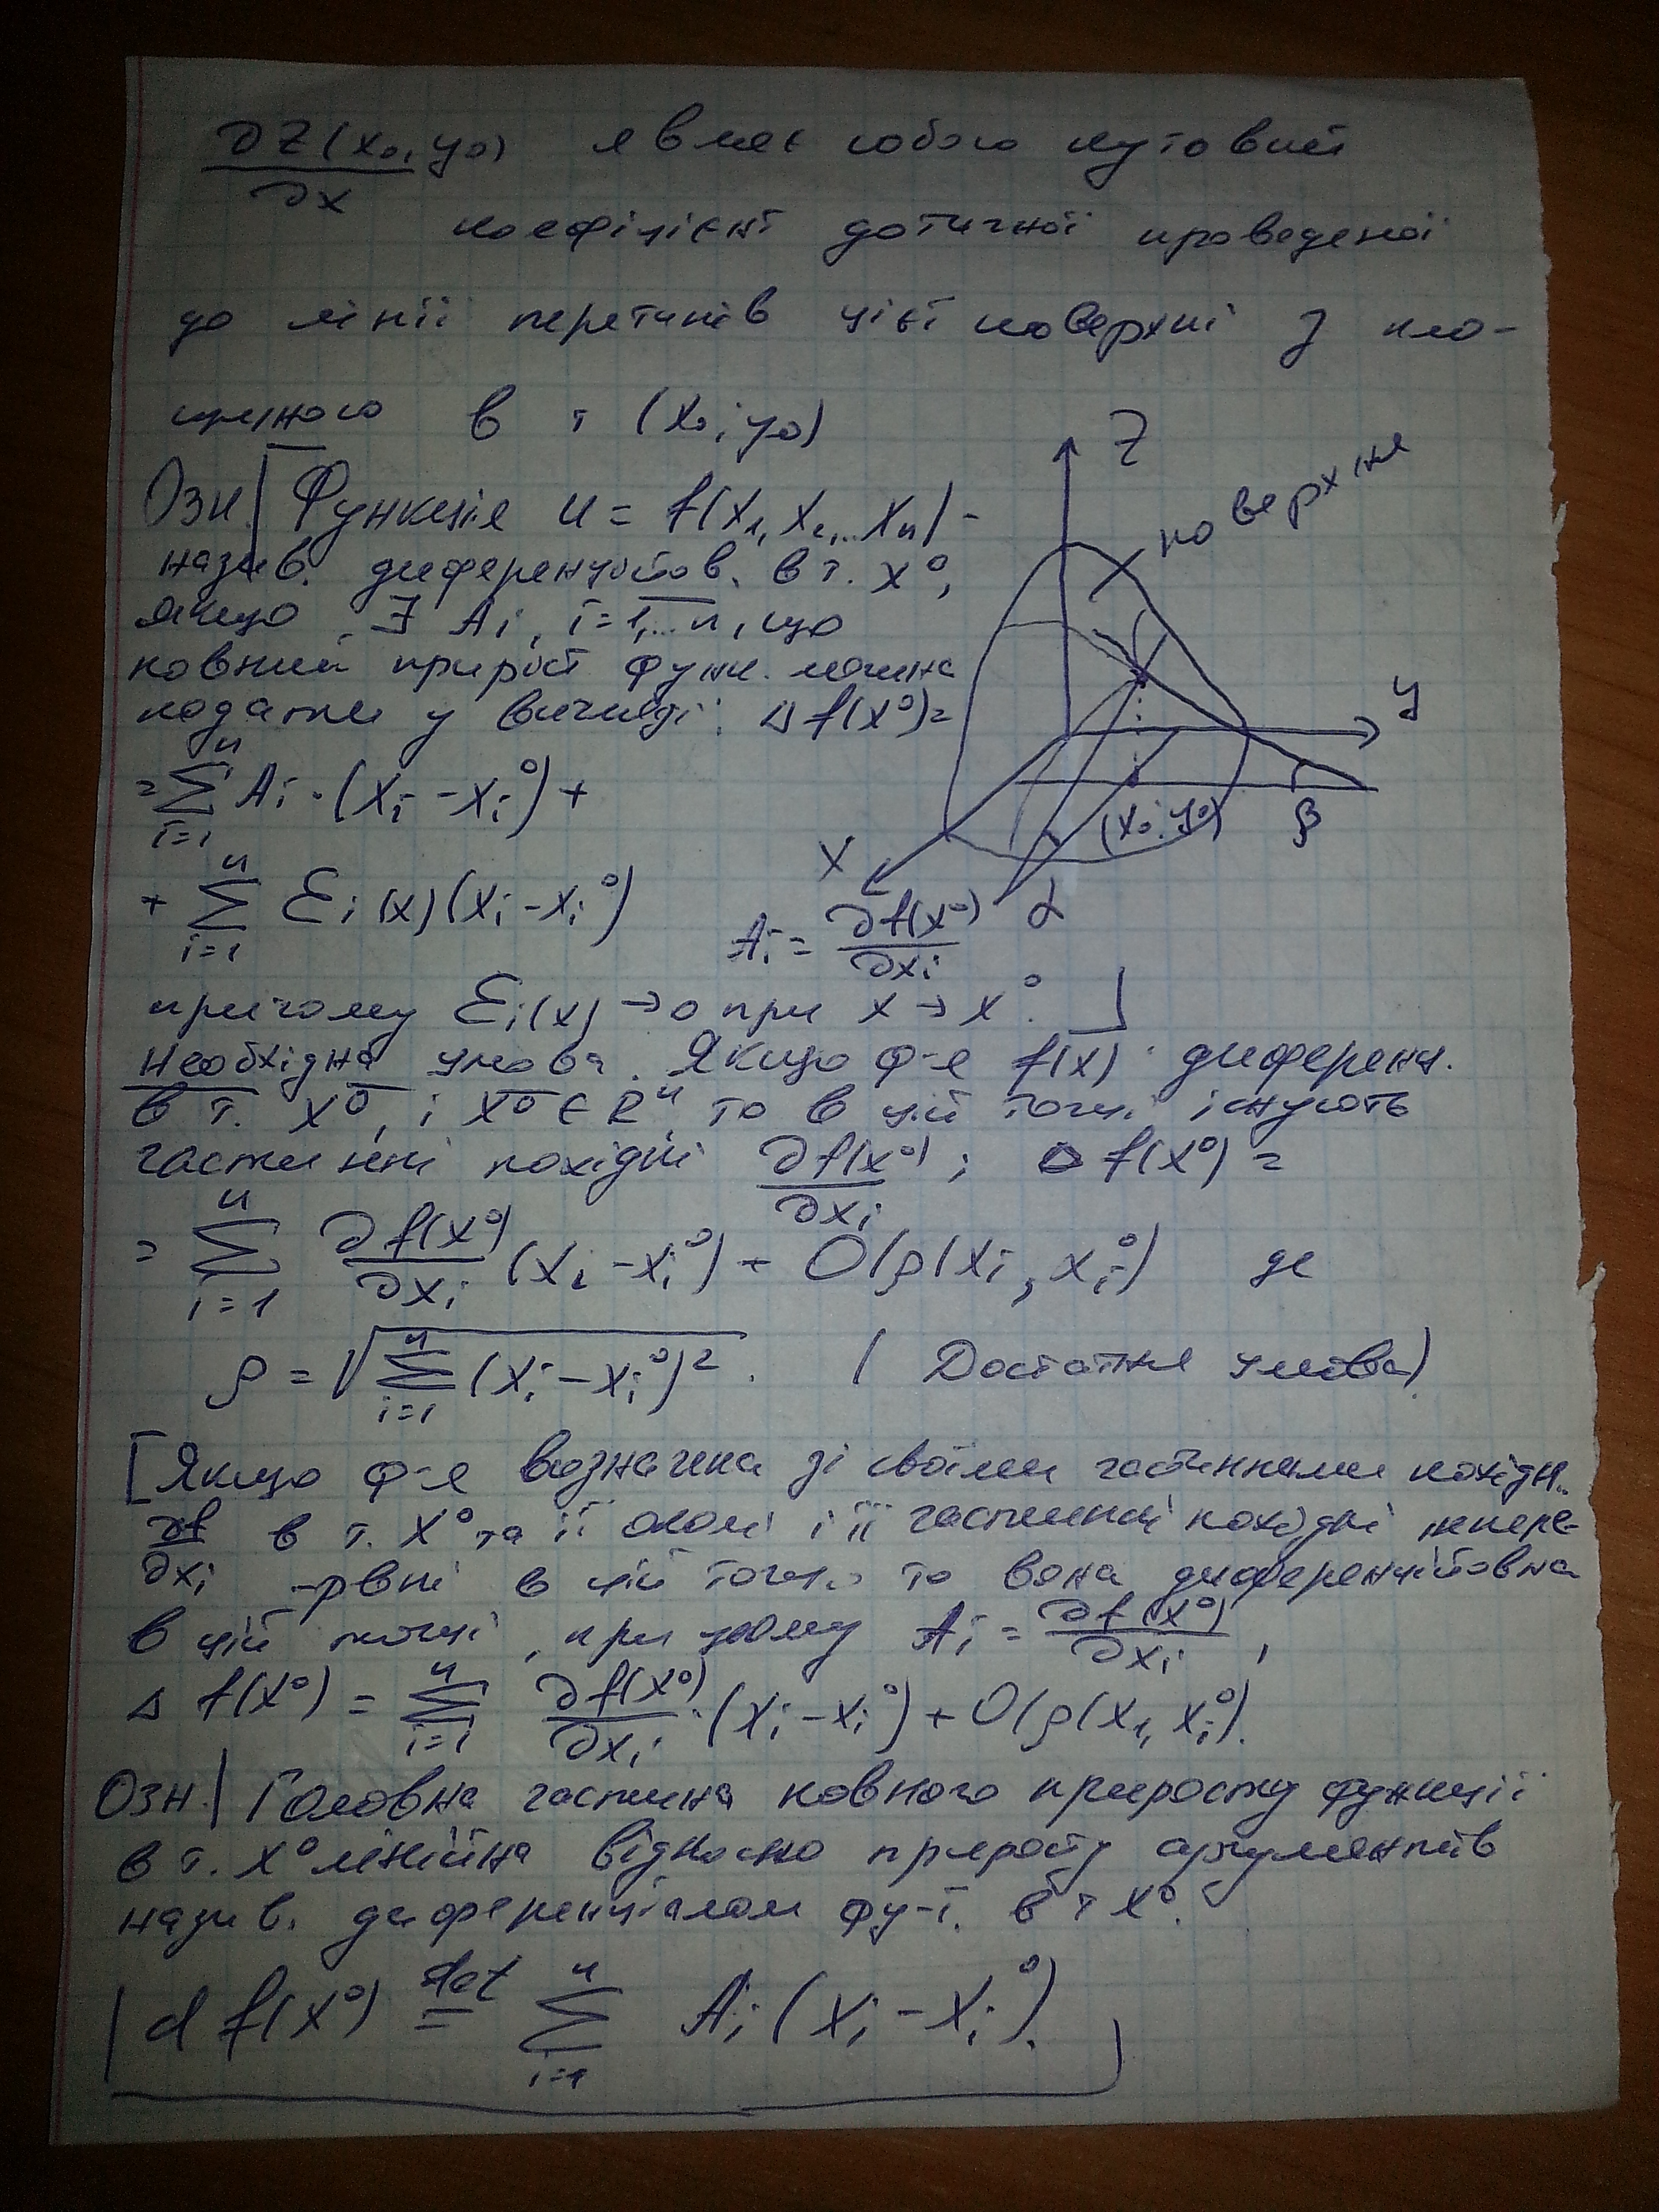 ∂Z(x₀, y₀)/∂x являє собою кутовий
коефіцієнт дотичної проведеної
до лінії перетинів цієї поверхні з пло-
щиною в т (x₀; y₀)
Z
поверхня
y
(x₀; y₀)
β
X
α
Озн. Функція u = f(x₁, x₂, ... xₙ) -
назив. диференційов. в т. x⁰,
якщо ∃ Aᵢ, i=1,...n, що
повний приріст функ. можна
подати у вигляді: Δf(x⁰)=
= Σ(i=1..n) Aᵢ·(xᵢ - xᵢ⁰) +
+ Σ(i=1..n) Ɛᵢ(x)(xᵢ - xᵢ⁰)
Aᵢ = ∂f(x⁰)/∂xᵢ
причому Ɛᵢ(x) → 0 при x → x⁰.
Необхідна умова. Якщо ф-я f(x) диференц.
в т. x⁰, і x⁰ ∈ Rⁿ, то в цій точці існують
частинні похідні ∂f(x⁰)/∂xᵢ ; Δf(x⁰) =
= Σ(i=1..n) ∂f(x⁰)/∂xᵢ (xᵢ - xᵢ⁰) + O(ρ(xᵢ, xᵢ⁰) де
ρ = √(Σ(i=1..n) (xᵢ - xᵢ⁰)²). (Достатня умова)
[Якщо ф-я визначена зі своїми частинними похідн.
∂f/∂xᵢ в т. x⁰ та її околі і її частинні похідні непере-
-рвні в цій точці то вона диференційовна
в цій точці, при цьому Aᵢ = ∂f(x⁰)/∂xᵢ ,
Δf(x⁰) = Σ(i=1..n) ∂f(x⁰)/∂xᵢ·(xᵢ - xᵢ⁰) + O(ρ(x₁, xᵢ⁰).
Озн. Головна частина повного приросту функції
в т. x⁰ лінійна відносно приросту аргументів
назив. диференціалом фу-ї. в т x⁰.
df(x⁰) def= Σ(i=1..n) Aᵢ(xᵢ - xᵢ⁰).